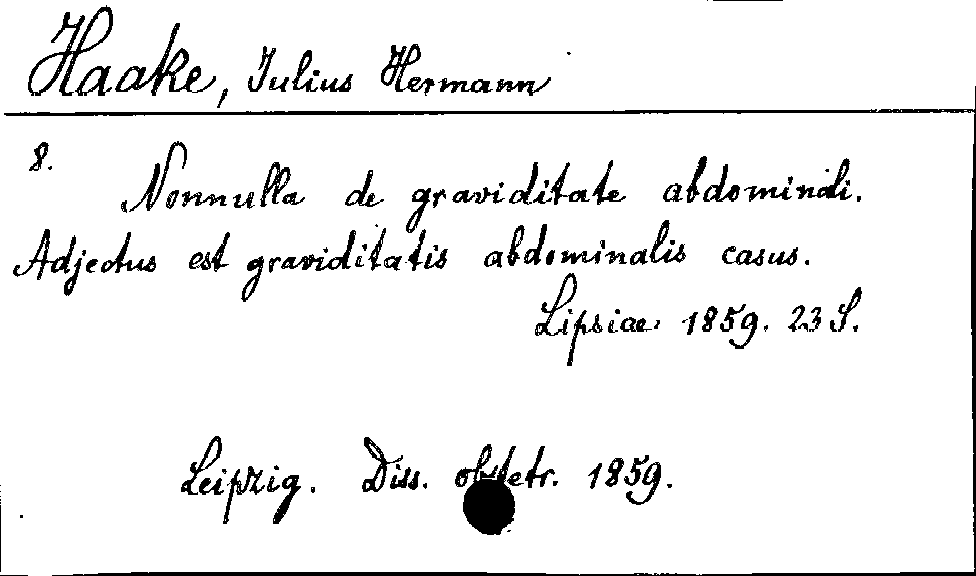 Haake, Julius Hermann
8.
Nonnulla de graviditate abdominali.
Adjectus est graviditatis abdominalis casus.
Lipsiae. 1859. 23 S.
Leipzig. Diss. obstetr. 1859.